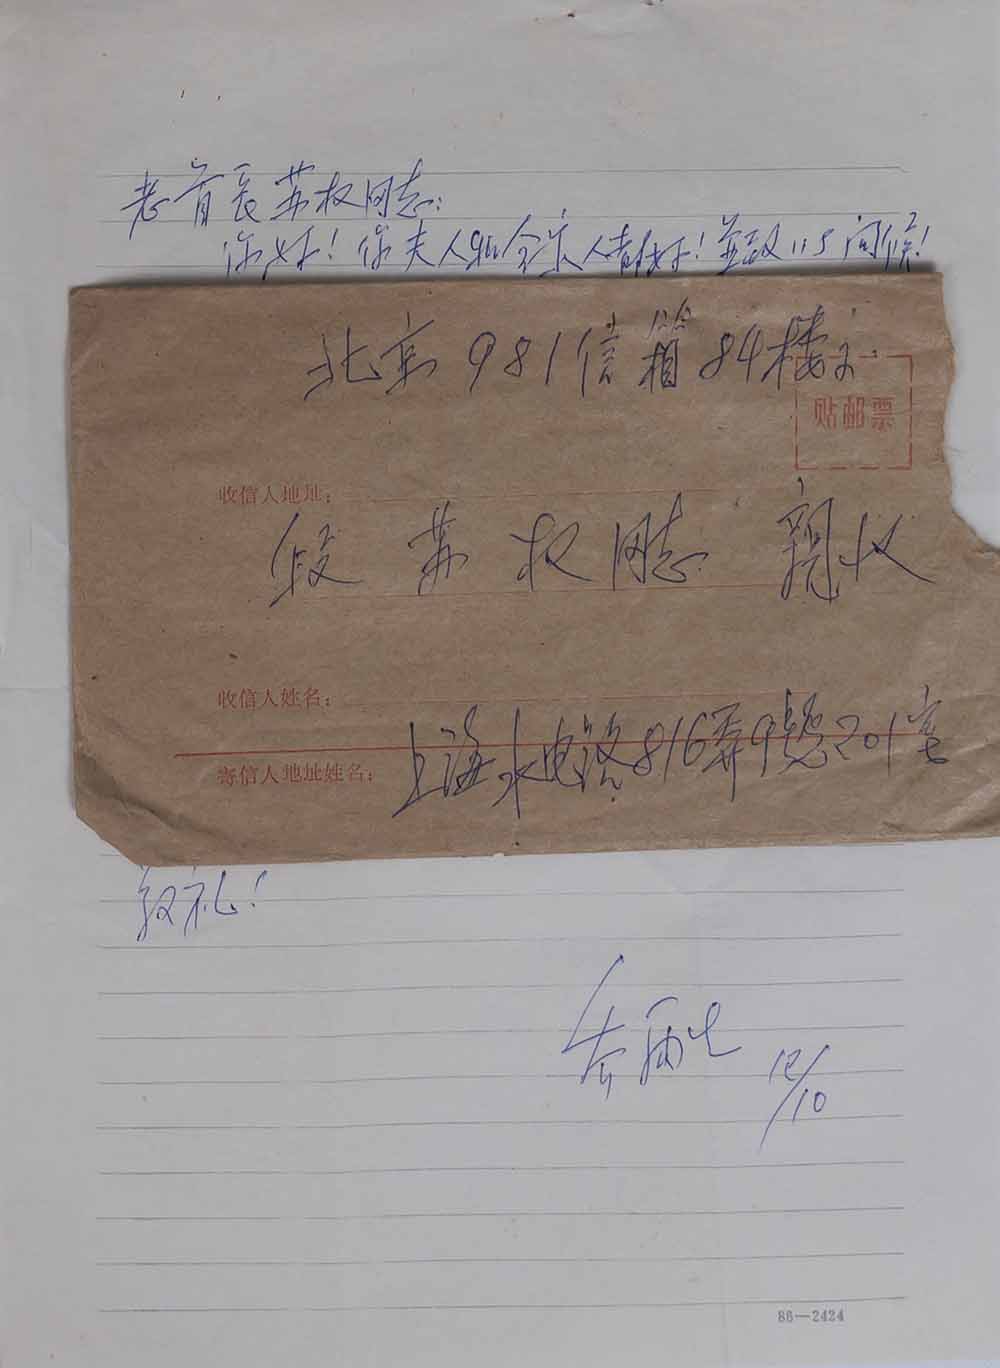 老首长苏权同志：
你好！你夫人和全家人都好！并致以问候！
北京981信箱84楼
贴邮票
收信人地址：
段苏权同志 亲收
收信人姓名：
上海水电路816弄9号201室
寄信人地址姓名：
敬礼！
12/10
86—2424